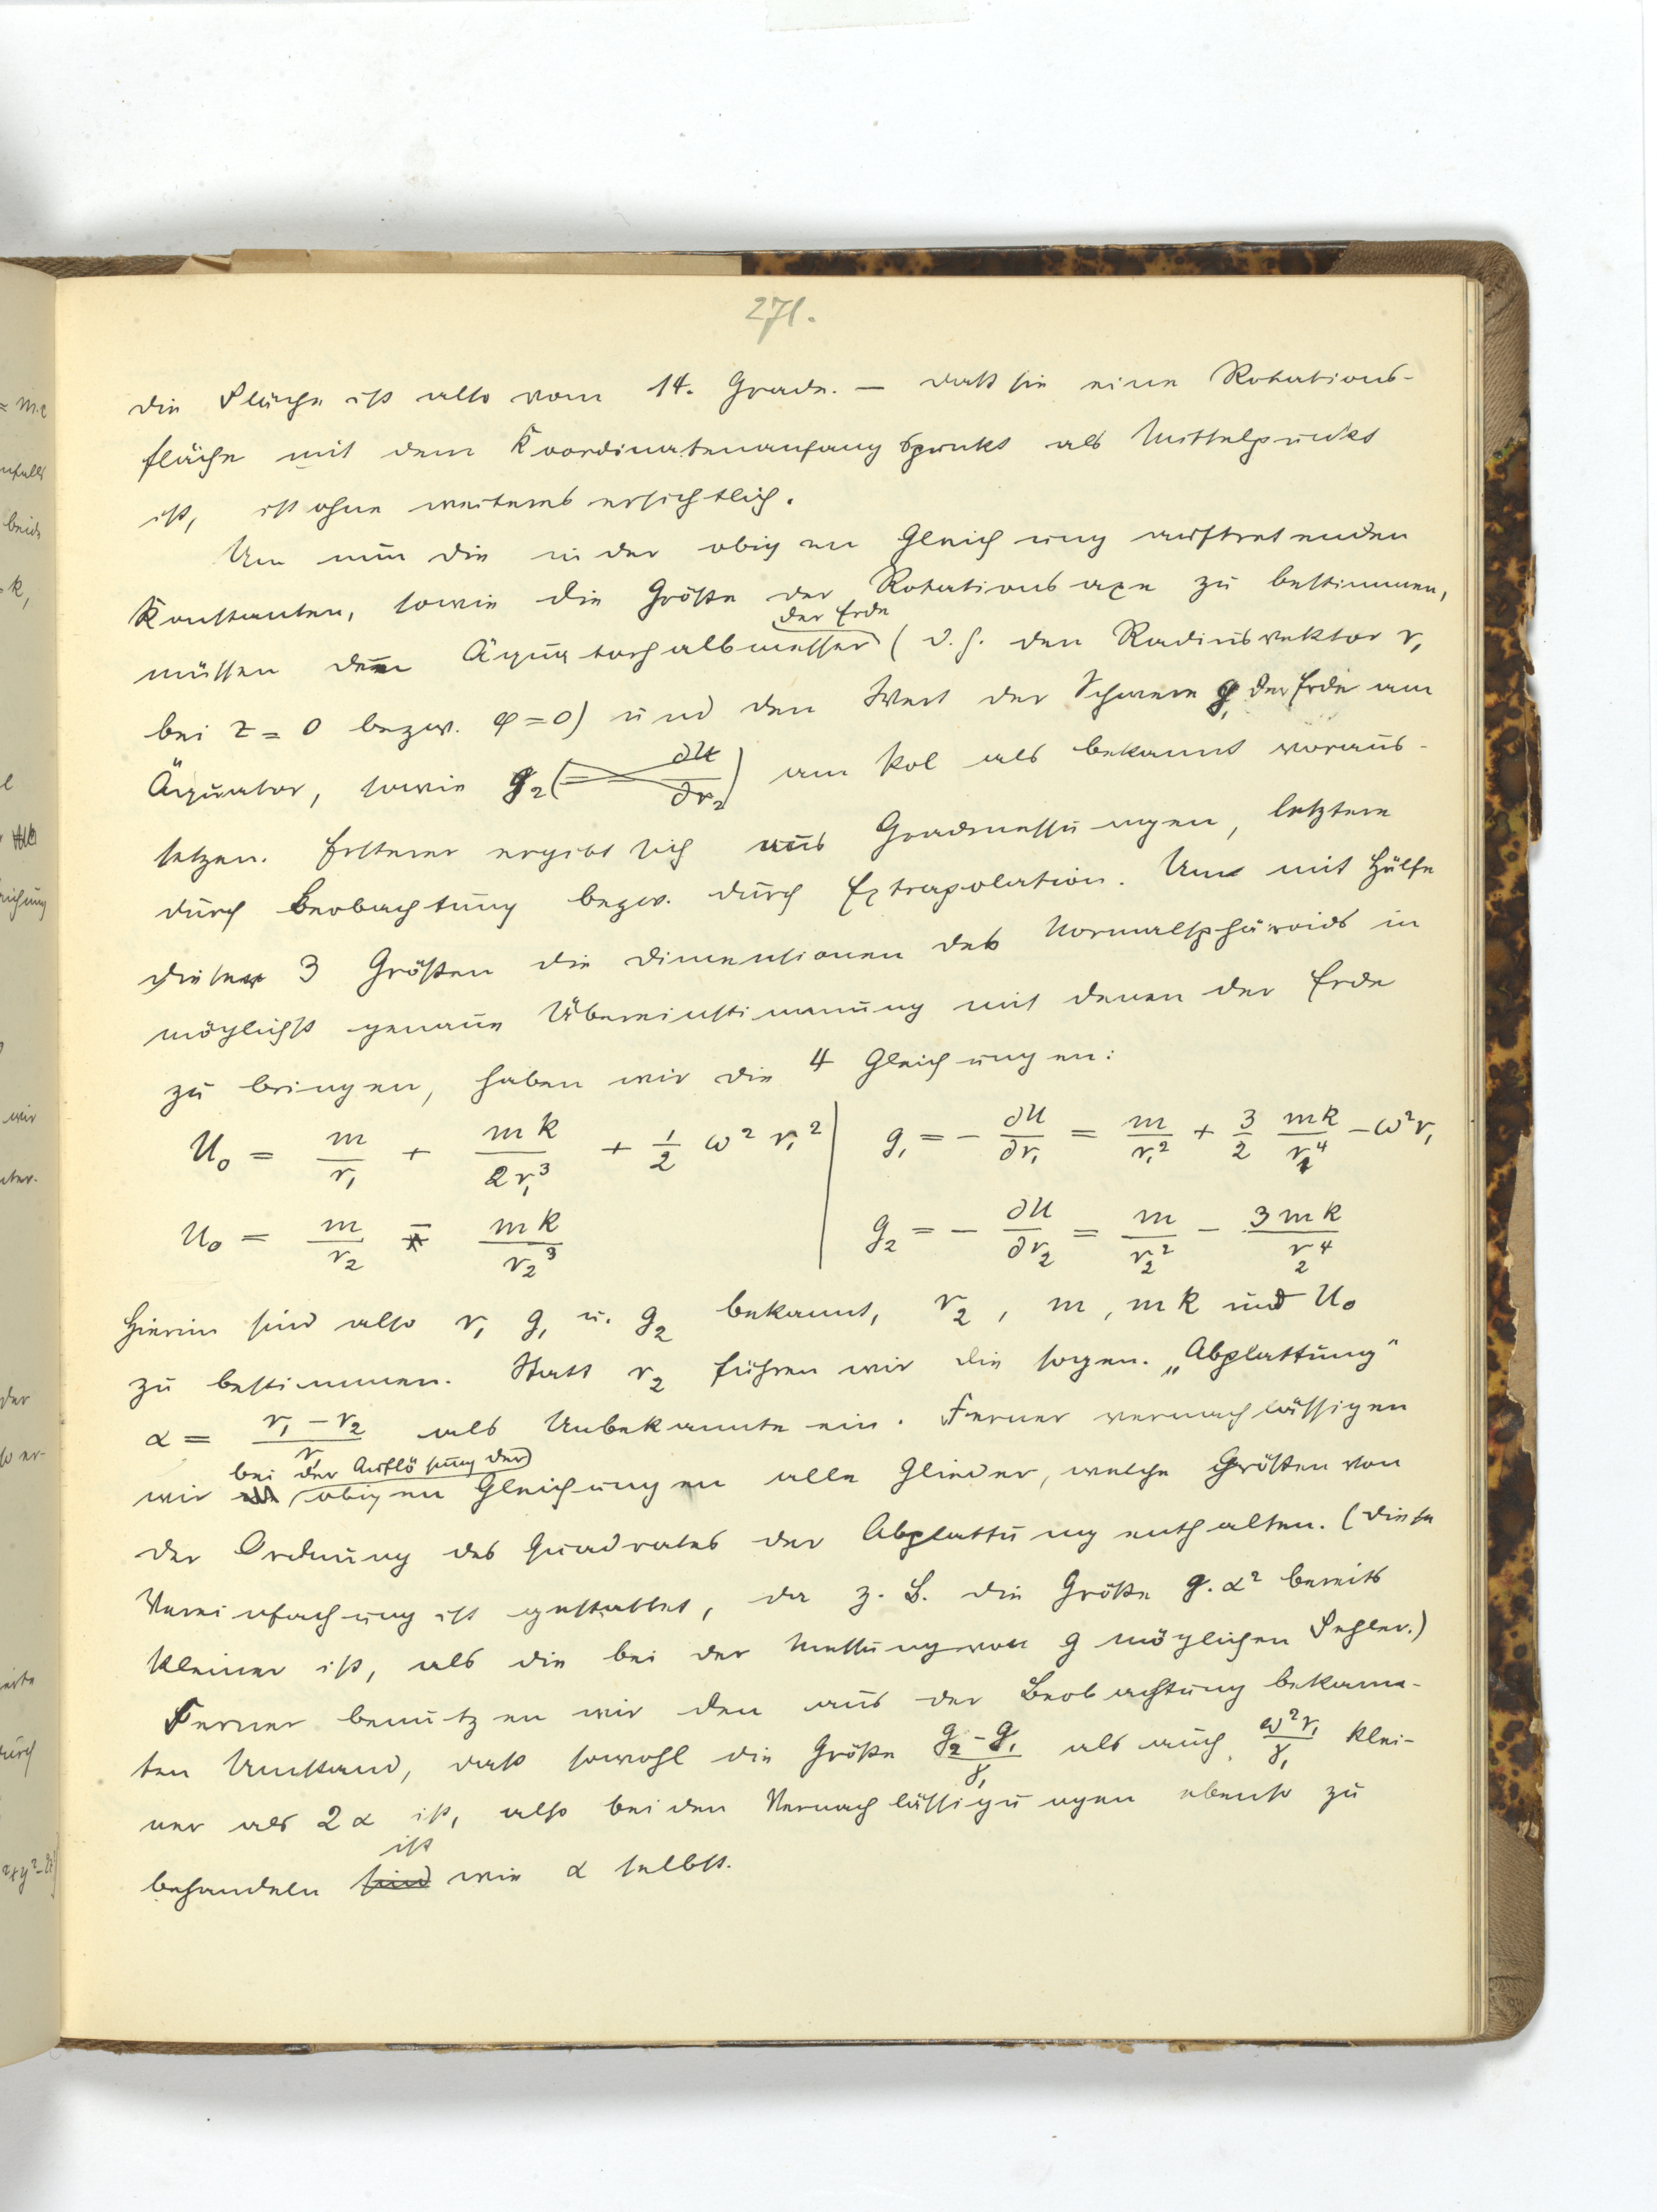 271.
die Fläche ist also vom 14. Grade. — daß sie eine Rotations-
fläche mit dem Koordinatenanfangspunkt als Mittelpunkt
ist, ist ohne weiteres ersichtlich.
Um nun die in der obigen Gleichung auftretenden
Konstanten, sowie die Größe der Rotationsaxe zu bestimmen,
der Erde
müssen den Äquatorhalbmesser (d.h. den Radiusvektor r₁
bei z = 0 bezw. φ = 0) und den Wert der Schwere g₁ der Erde am
Äquator, sowie g₂ (= ∂U/∂r₂) am Pol als bekannt voraus-
setzen. Ersterer ergibt sich aus Gradmessungen, letztere
durch Beobachtung bezw. durch Extrapolation. Um mit Hülfe
dieser 3 Größen die Dimensionen des Normalsphäroids in
möglichst genaue Übereinstimmung mit denen der Erde
zu bringen, haben wir die 4 Gleichungen:
U₀ = m/r₁ + mk/2r₁³ + 1/2 ω² r₁² | g₁ = − ∂U/∂r₁ = m/r₁² + 3/2 mk/r₁⁴ − ω²r₁
U₀ = m/r₂ − mk/r₂³ | g₂ = − ∂U/∂r₂ = m/r₂² − 3mk/r₂⁴
Hierin sind also r₁ g₁ u. g₂ bekannt, r₂, m, mk und U₀
zu bestimmen. Statt r₂ führen wir die sogen. „Abplattung"
α = r₁ − r₂/r₁ als Unbekannte ein. Ferner vernachlässigen
bei der Auflösung der
wir obigen Gleichungen alle Glieder, welche Größen von
der Ordnung des Quadrates der Abplattung enthalten. (Diese
Vereinfachung ist gestattet, da z. B. die Größe g. α² bereits
kleiner ist, als die bei der Messung von g möglichen Fehler.)
Ferner benutzen wir den aus der Beobachtung bekann-
ten Umstand, daß sowohl die Größe g₂ − g₁/g₁ als auch ω²r₁/g₁ klei-
ner als 2α ist, also bei den Vernachlässigungen ebenso zu
ist
behandeln sind wie α selbst.